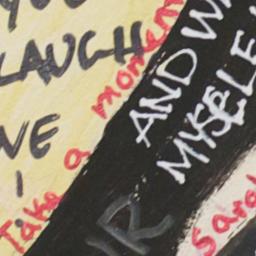 YOU
LAUGH
VE
I
Take a moment
AND W
MYSELF
Sarah